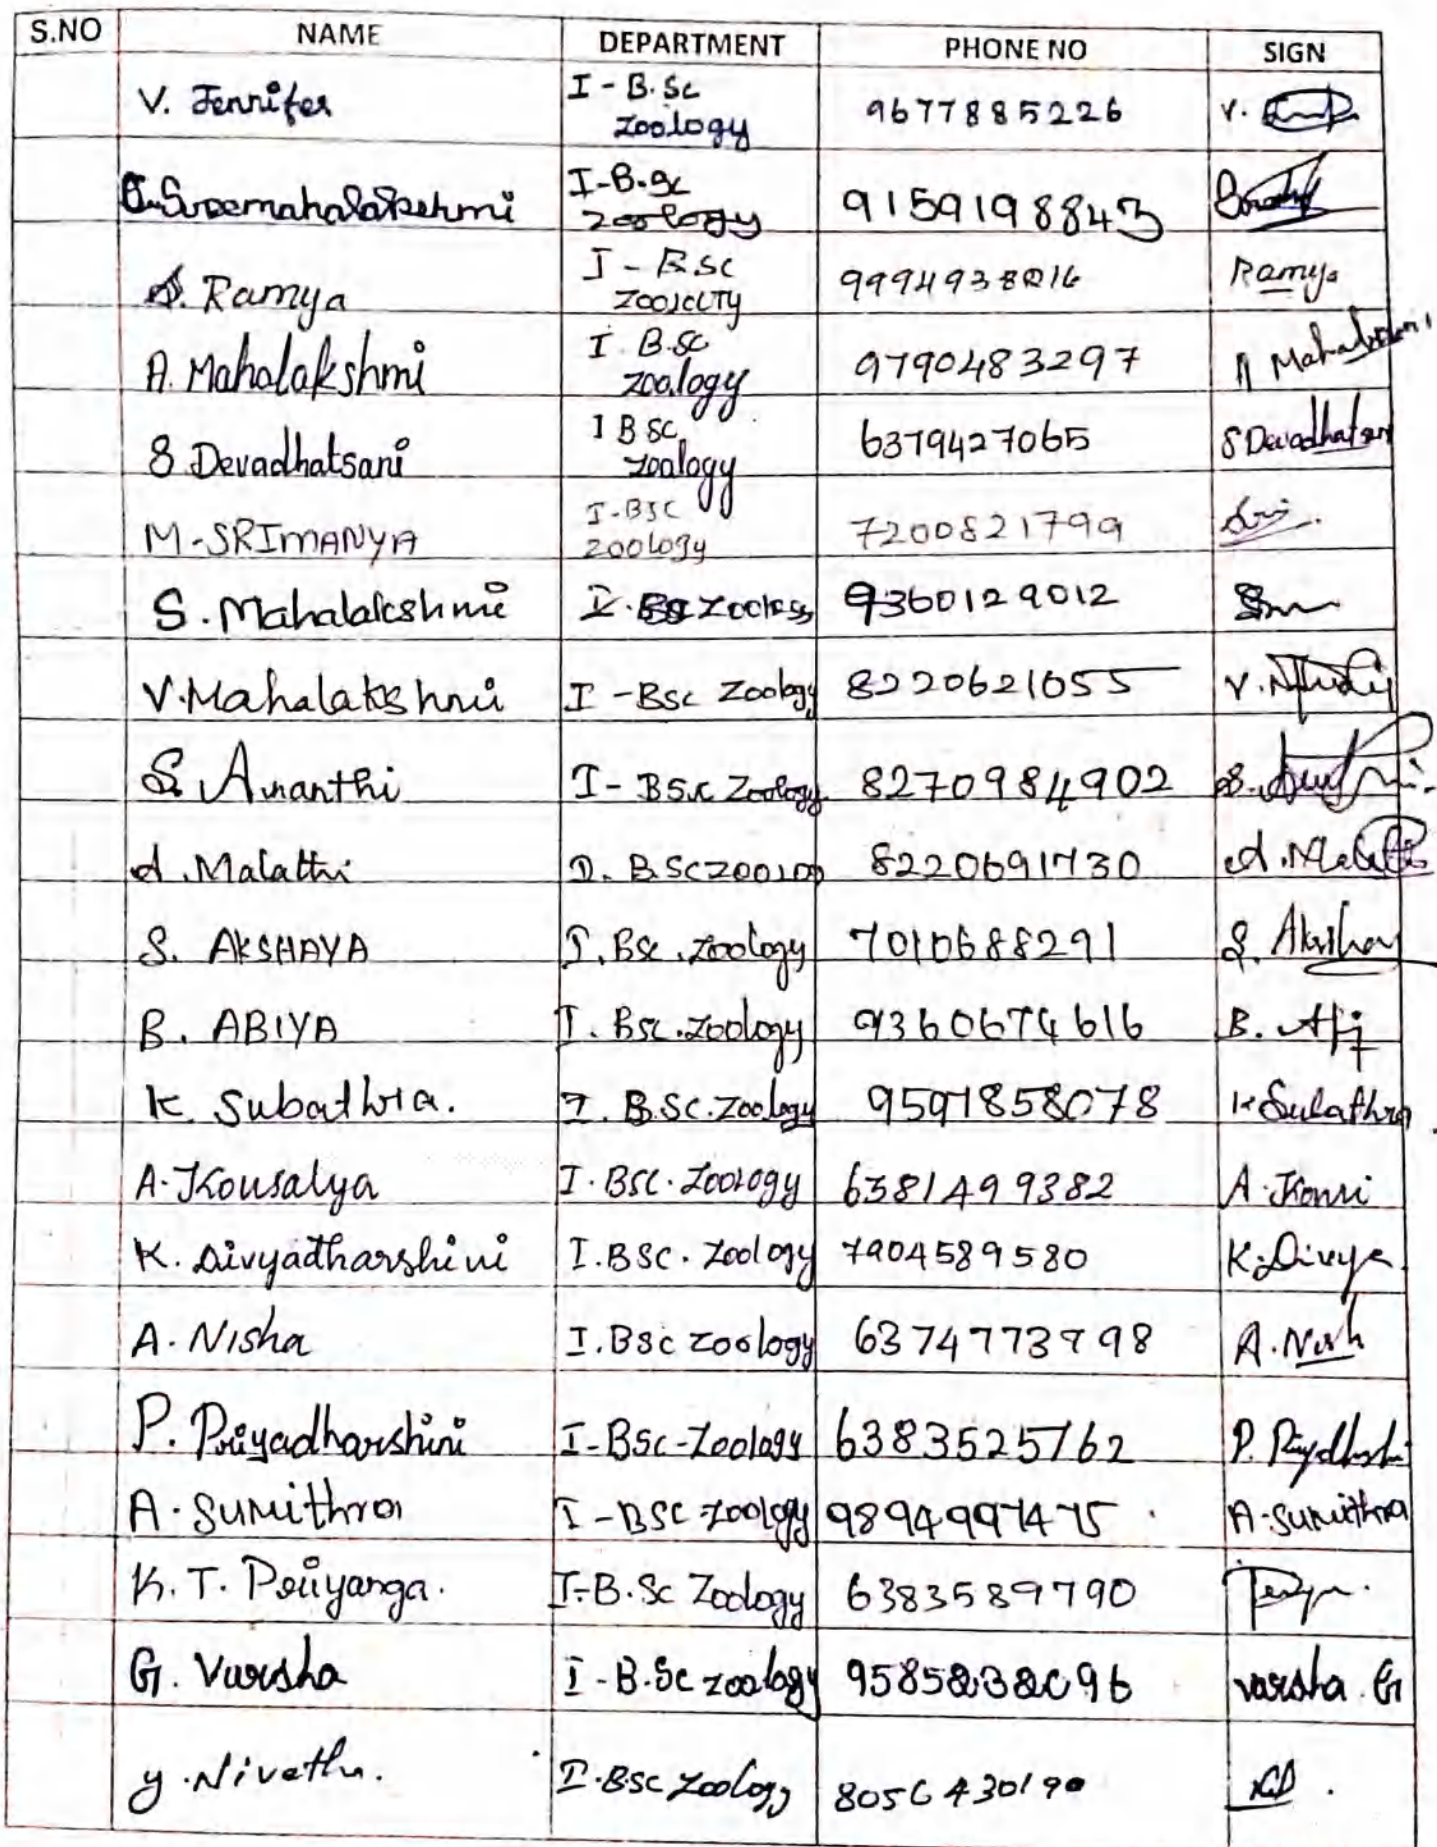 S.NO NAME DEPARTMENT PHONE NO SIGN
V. Jennifer I - B.Sc Zoology 9677885226 V.
Sreemahalakshmi I-B.Sc Zoology 9159198843
S. Ramya I - B.Sc Zoology 9994938216 Ramya
A. Mahalakshmi I B.Sc zoalogy 9790483297 A Mahalakshmi
S Devadhatsani I B SC zoalogy 6379427065 S Devadhatsani
M-SRIMANYA I-BSC ZOOLOGY 7200821799 Sri
S. Mahalakshmi I. BSc Zoology 9360129012
V. Mahalakshmi I - BSc Zoology 8220621055 V.
S. Ananthi I - BSc Zoology 8270984902 S.
A. Malathi I. B.Sc Zoology 8220691730 A. Malathi
S. AKSHAYA I. BSc. Zoology 7010688291 S. Akshay
B. ABIYA I. BSc. Zoology 9360674616 B.
K Subathra. I. B.SC. Zoology 9597858078 K Subathra
A. Kousalya I. BSC. Zoology 6381499382 A. Kousi
K. Divyadharshini I. BSC. Zoology 7904589580 K. Divya
A. Nisha I. BSC Zoology 6374773798 A. Nish
P. Priyadharshini I-BSc-Zoology 6383525762 P. Priyadharshi
A. Sumithra I - BSC-Zoology 9894997475 A. Sumithra
K. T. Priyanga. I-B.Sc Zoology 6383589790
G. Varsha I - B.Sc zoalogy 9585838096 varsha G
Y. Nivetha. I. BSC Zoology 8056430190